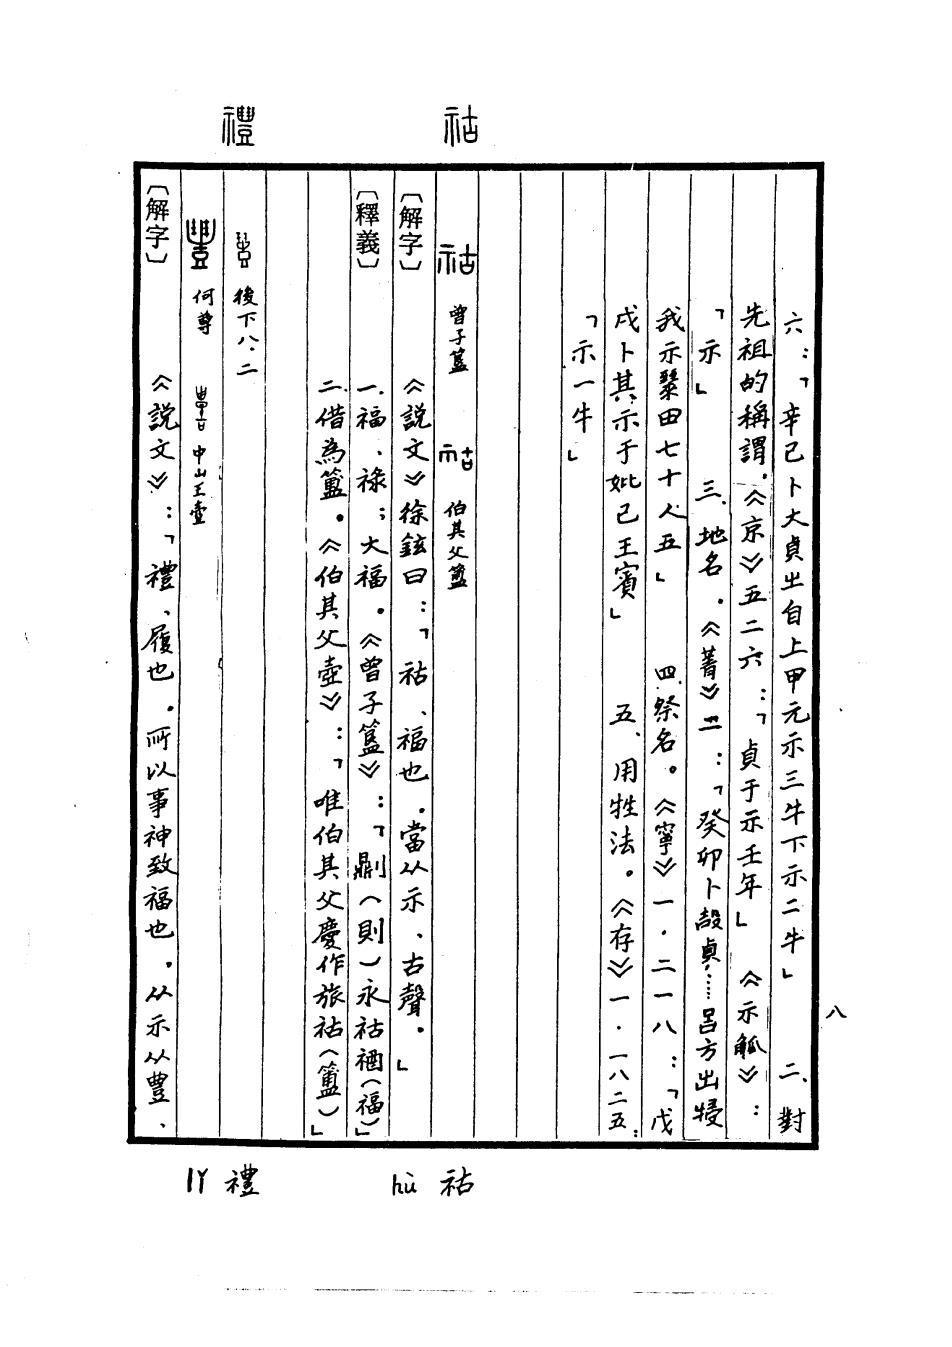 祜
禮
六：「辛已卜大貞㞢自上甲元示三牛下示二牛」　二、對
先祖的稱謂．《京》五二六：「貞于示壬年」　《示觚》：
「示」　三、地名．《菁》二：「癸卯卜㱿貞……呂方出㸸
我示田七十人五」　四、祭名。《寧》一．二一八：「戊
戌卜其示于妣己王賓」　五、用牲法。《存》一．一八二五：
「示一牛」
祜　曾子簠　祜　伯其父簠
〔解字〕　《說文》徐鉉曰：「祜、福也．當从示、古聲．」
〔釋義〕　一、福、祿；大福．《曾子簠》：「鼎刂（則）永祜（福）」
二、借為簠．《伯其父壺》：「唯伯其父慶作旅祜（簠）」
後下八．二
何尊　中山王壺
〔解字〕　《說文》：「禮、履也．所以事神致福也．从示从豊、
八
祜 hù
禮 lǐ